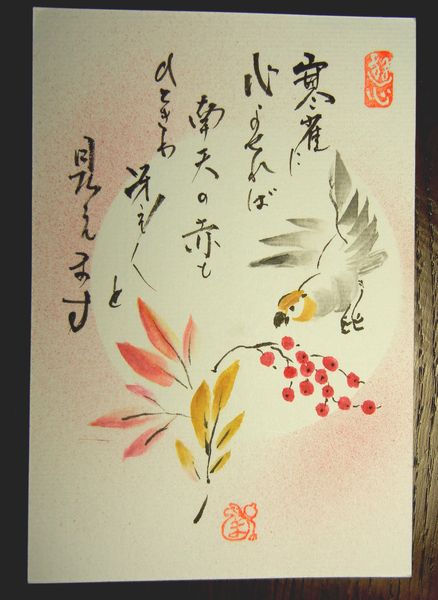 寒雀に
心よせれば
南天の赤も
ひときわ
冴え〱と
見えます
遊心